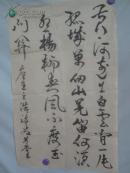 黄河远上白云间一片
孤城万仞山羌笛何须
怨杨柳春风不度玉
门关 唐王之涣诗